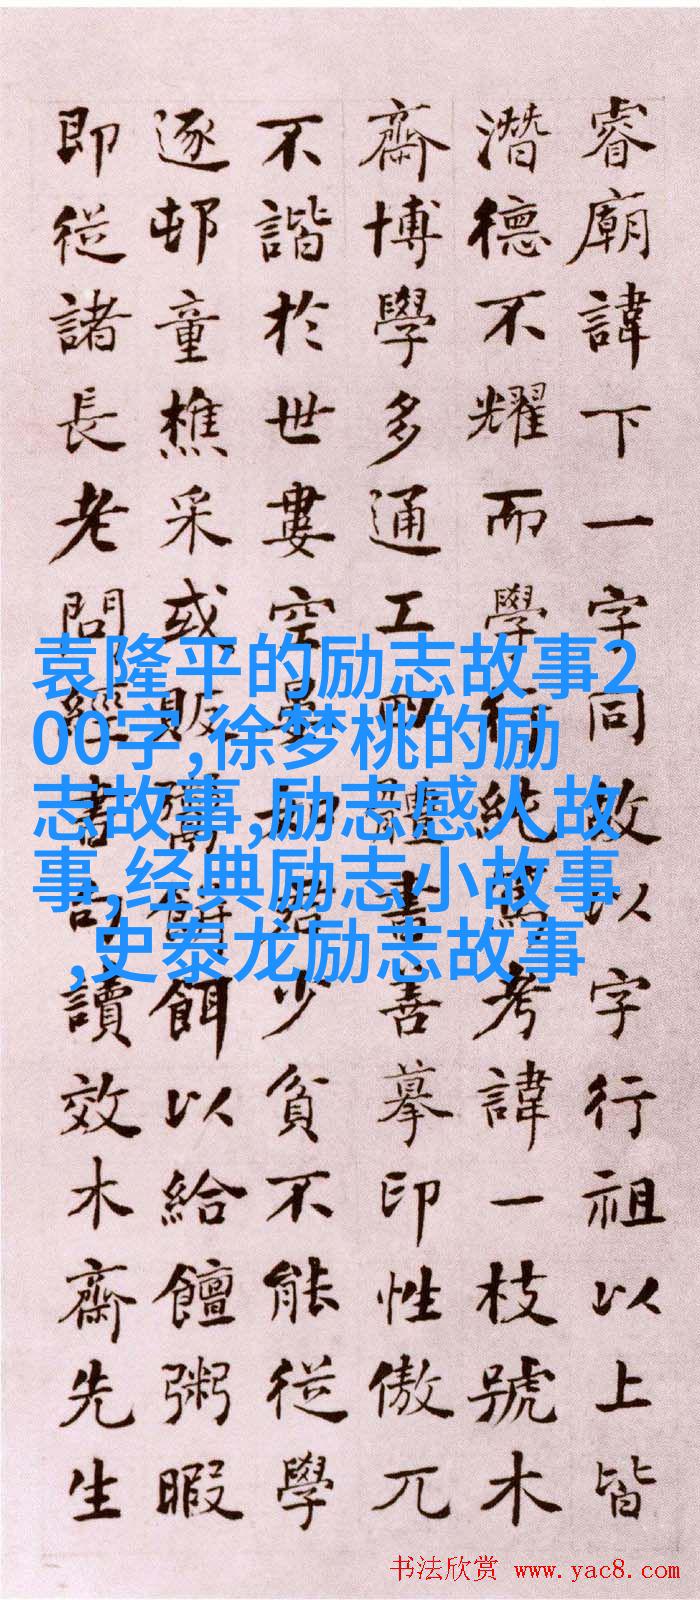 睿廟諱下一字同故以字行祖以上皆
潛德不耀而學行純篤考諱一枝號木
齋博學多通工四體書善摹印性傲兀
不諧於世婁空晏如君少貧不能從學
逐邨童樵采或販鬻餅餌以給饘粥暇
即從諸長老問經書句讀效木齋先生
袁隆平的励志故事2
00字,徐梦桃的励
志故事,励志感人故
事,经典励志小故事
,史泰龙励志故事
书法欣赏 www.yac8.com